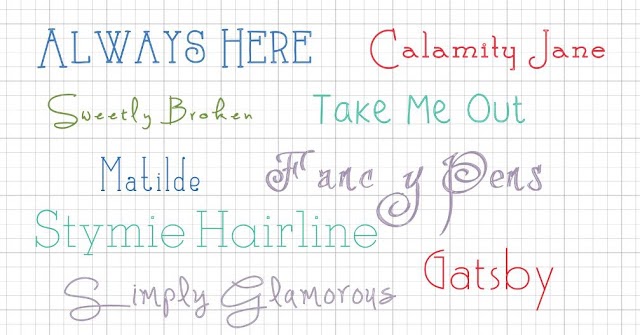 ALWAYS HERE
Calamity Jane
Sweetly Broken
Take Me Out
Matilde
Fancy Pens
Stymie Hairline
Gatsby
Simply Glamorous